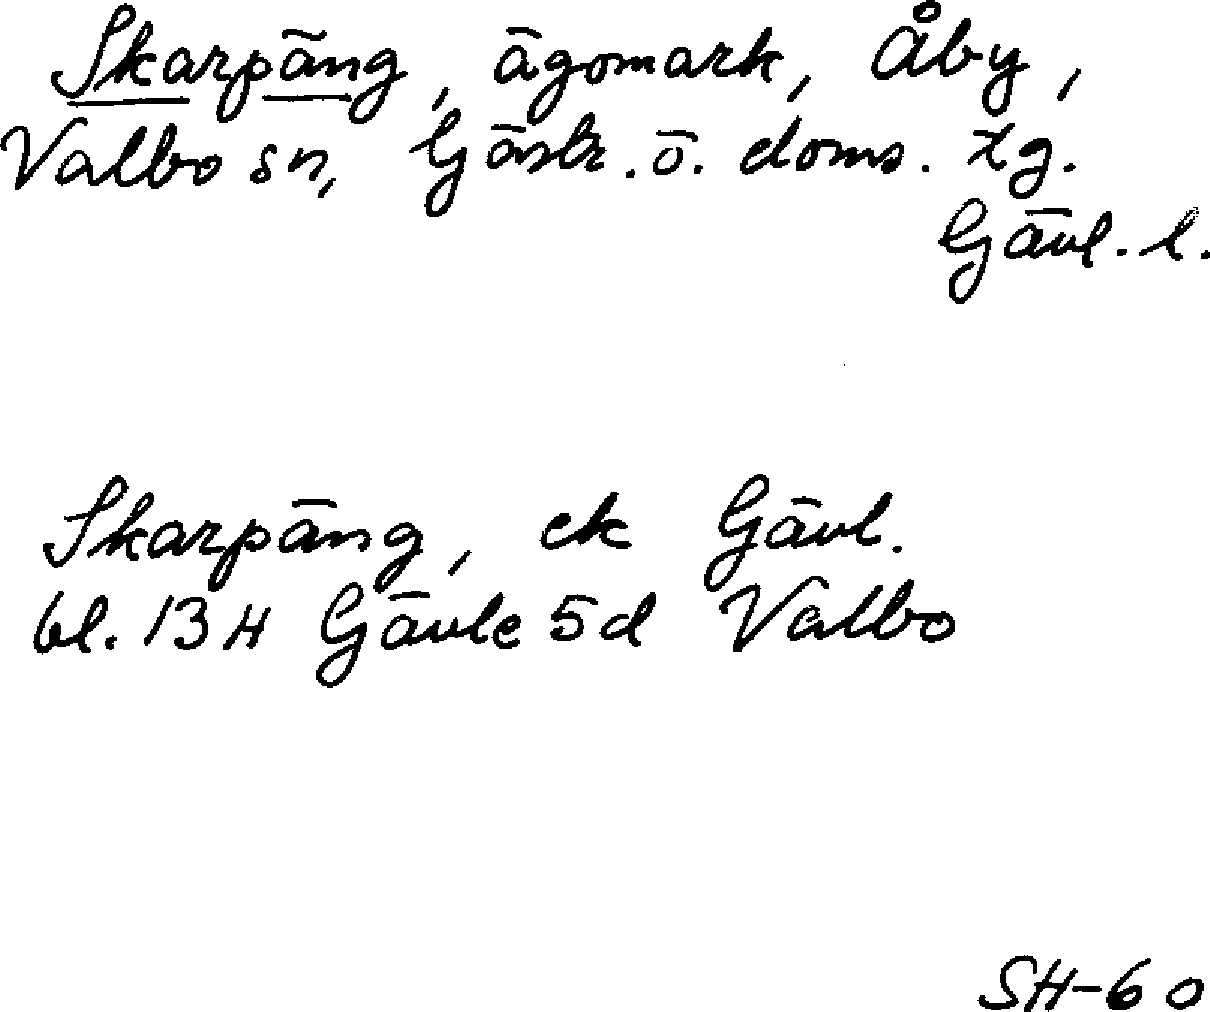 Skarpäng, ägomark, Åby,
Valbo sn, Gästr. ö. doms. tg.
Gävl. l.
Skarpäng, ek Gävl.
bl. 13H Gävle 5d Valbo
SH-60